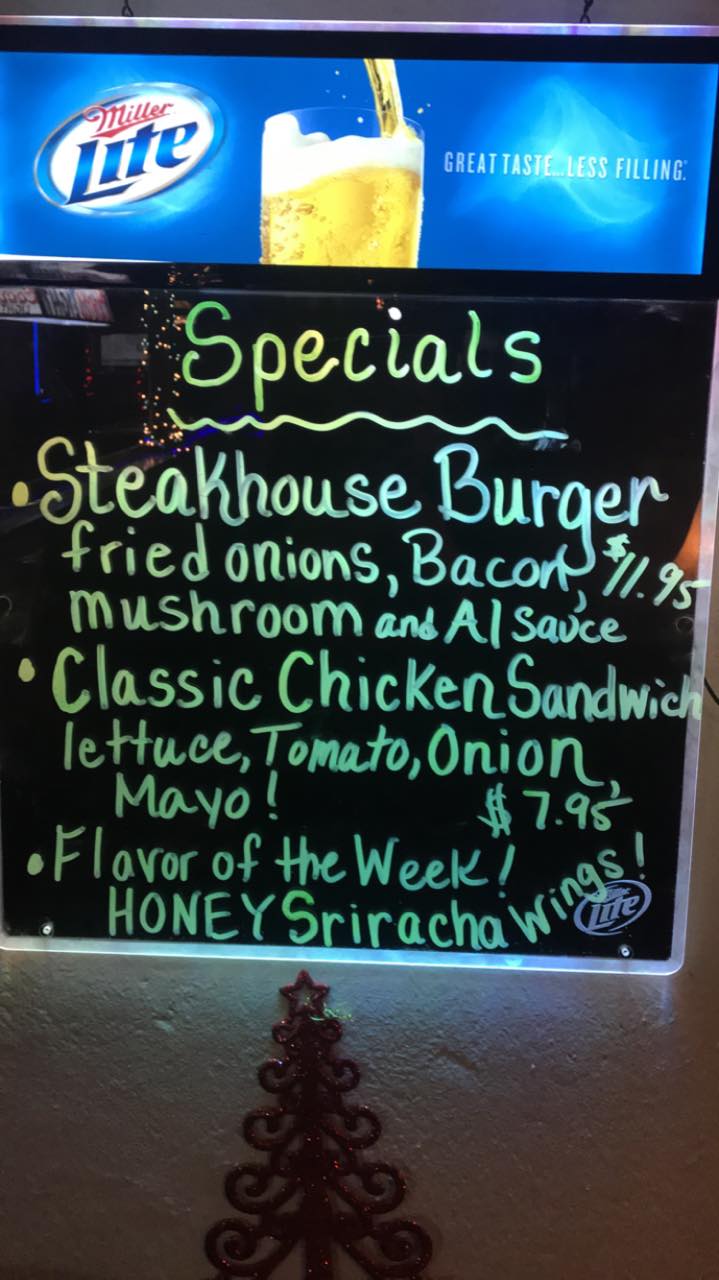 Miller
Lite
GREAT TASTE...LESS FILLING.
Specials
• Steakhouse Burger
fried onions, Bacon, $11.95
mushroom and A1 Sauce
• Classic Chicken Sandwich
lettuce, Tomato, Onion,
Mayo! $7.95
• Flavor of the Week!
HONEY Sriracha Wings!
Miller
Lite